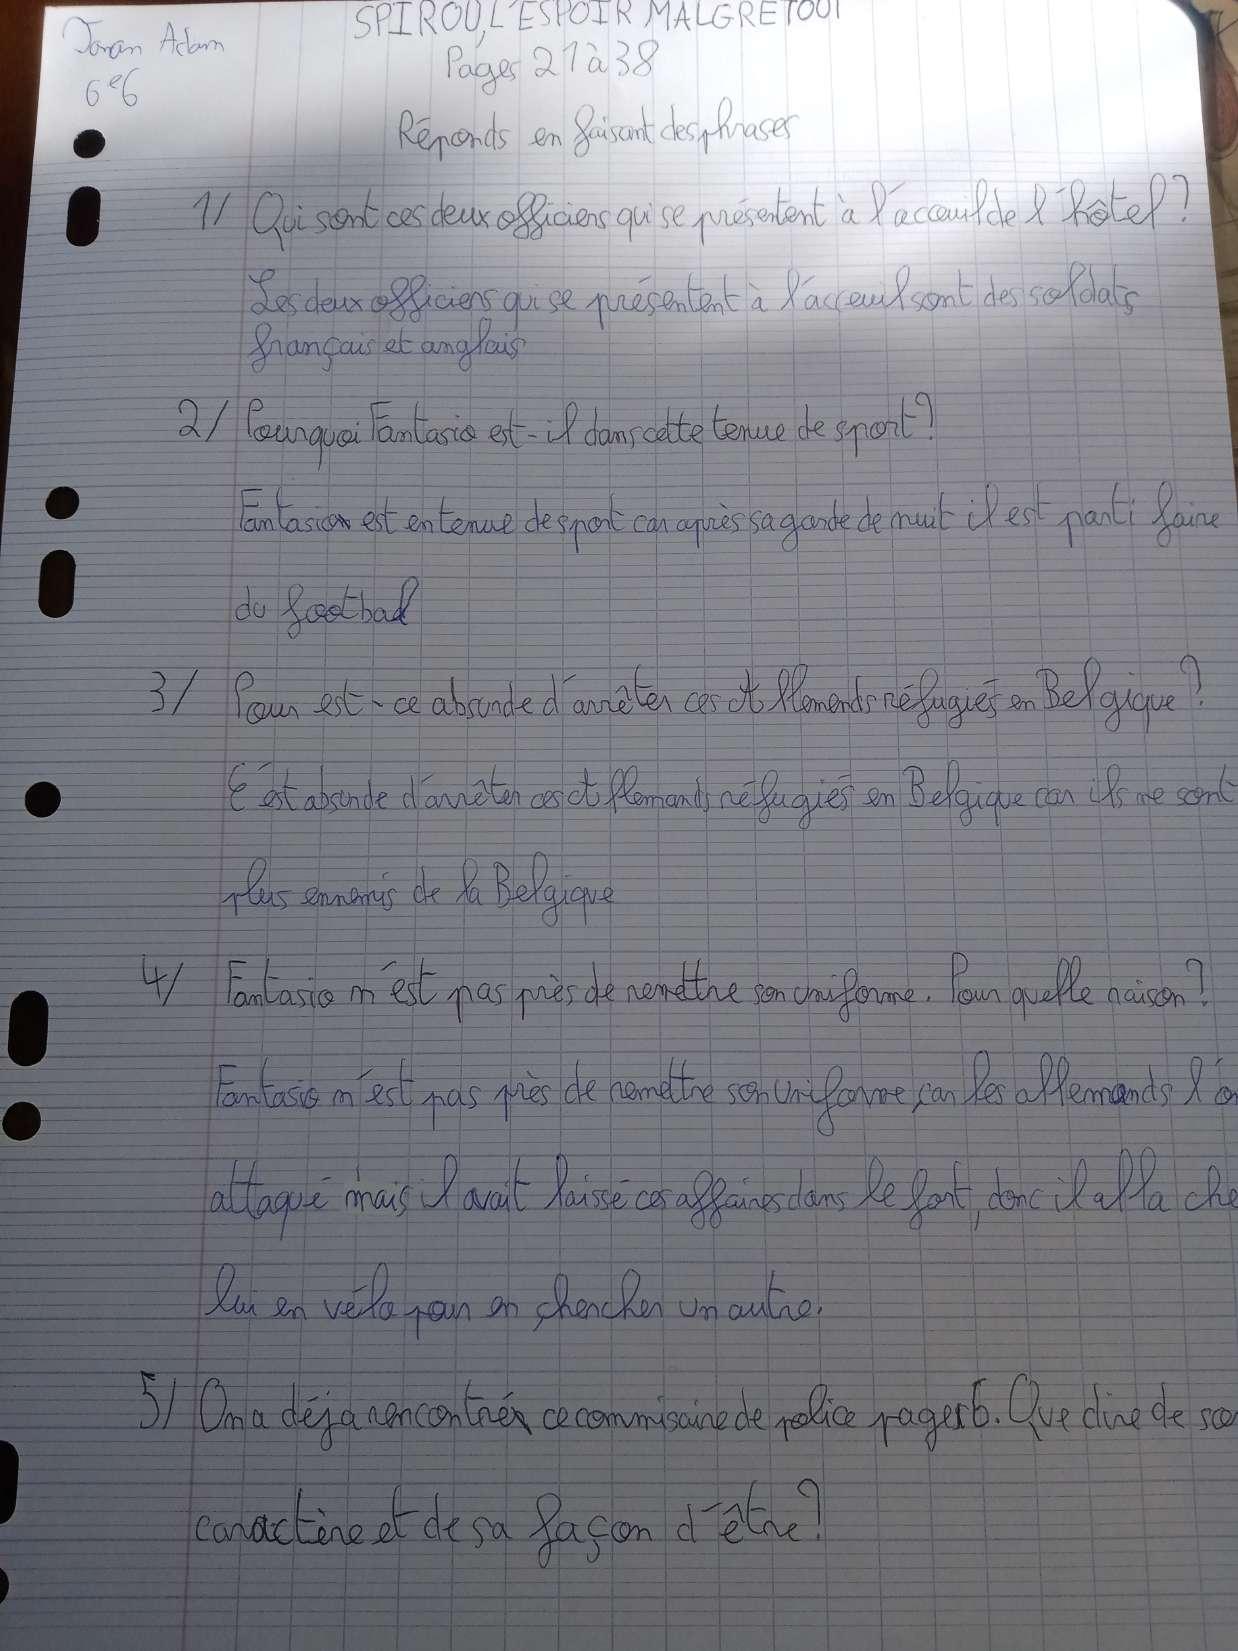 SPIROU, L'ESPOIR MALGRE TOUT
Joran Adam
Pages 21 à 38
6e6
Réponds en faisant des phrases
1/ Qui sont ces deux officiers qui se présentent à l'accueuil de l'hôtel?
Les deux officiers qui se présentent à l'acceuil sont des soldats
français et anglais
2/ Pourquoi Fantasio est-il dans cette tenue de sport?
Fantasion est en tenue de sport car après sa garde de nuit il est parti faire
du football
3/ Pour est-ce absurde d'arrêter ces Allemends réfugiés en Belgique?
C'est absurde d'arrêter ces Allemands réfugiés en Belgique car ils ne sont
plus ennemis de la Belgique
4/ Fantasio n'est pas près de remettre son uniforme. Pour quelle raison?
Fantasio n'est pas près de remettre son uniforme, car les allemands l'on
attaqué mais il avait laissé ces affaires dans le fort, donc il alla che
lui en vélo pour en chercher un autre.
5/ On a déja rencontrér ce commisaire de police page 6. Que dire de son
caractère et de sa façon d'être?